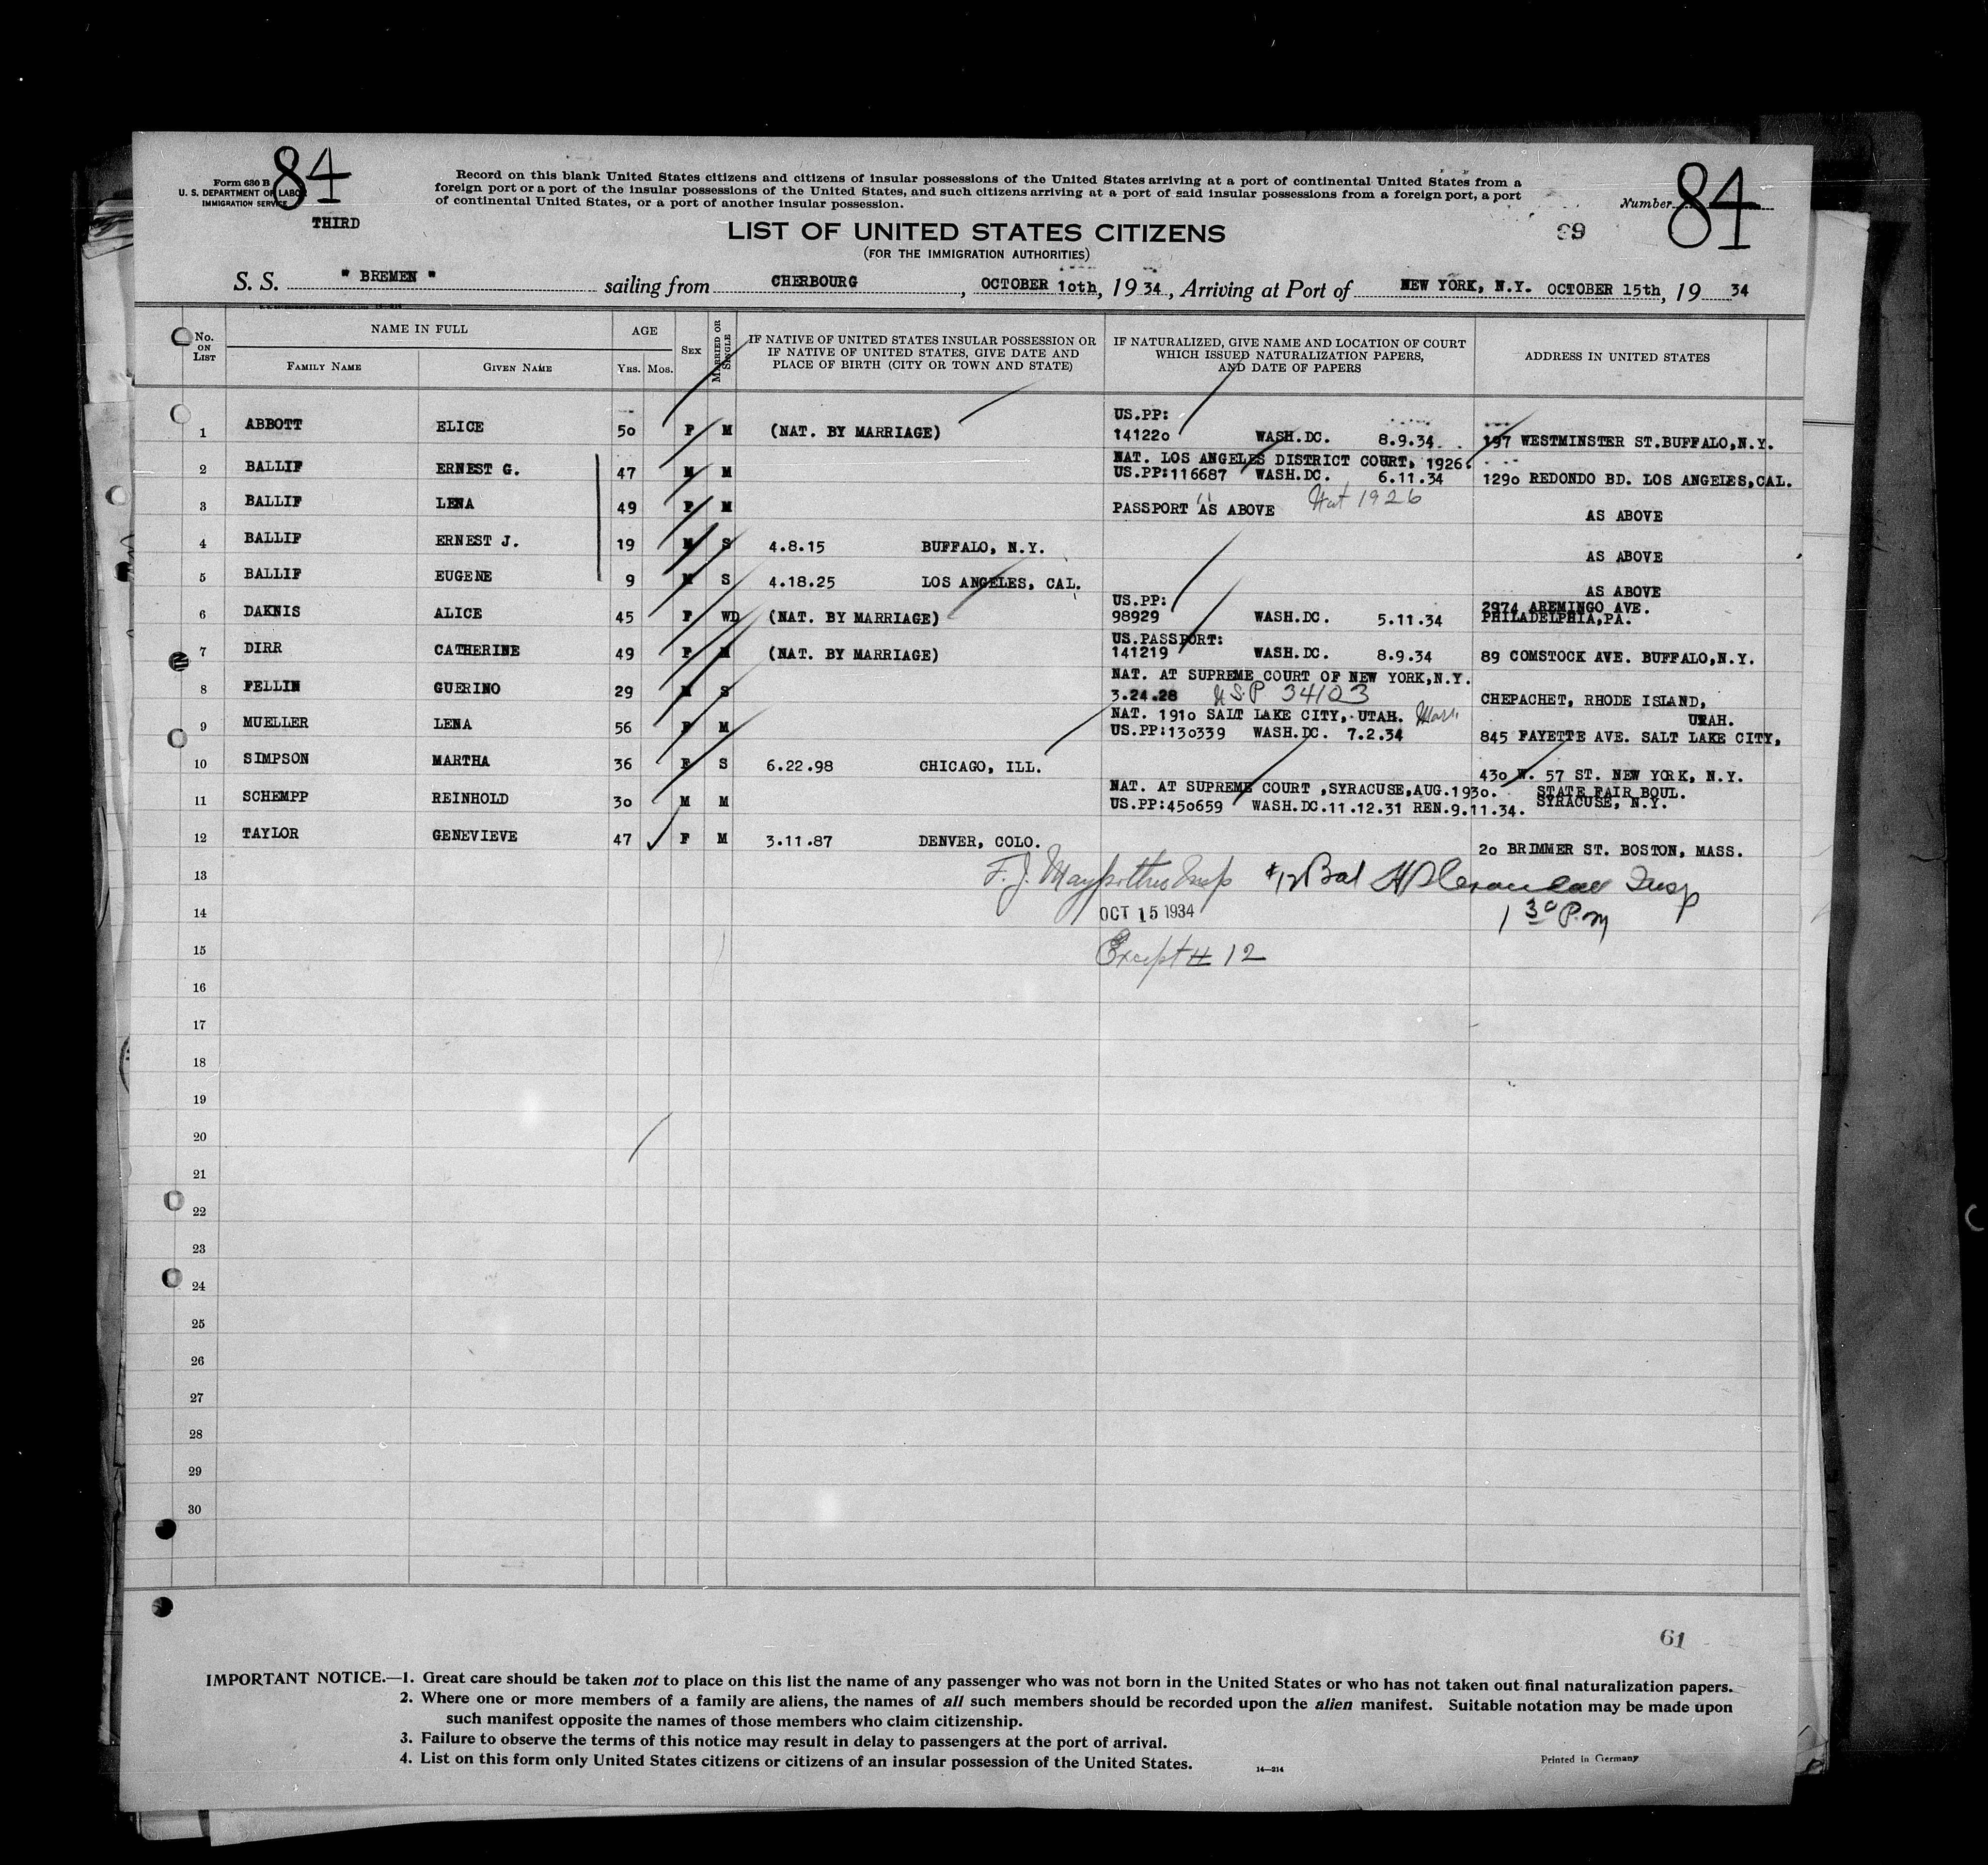 84
Form 630 B
U. S. DEPARTMENT OF LABOR
IMMIGRATION SERVICE
THIRD
Record on this blank United States citizens and citizens of insular possessions of the United States arriving at a port of continental United States from a
foreign port or a port of the insular possessions of the United States, and such citizens arriving at a port of said insular possessions from a foreign port, a port
of continental United States, or a port of another insular possession.
Number 84
LIST OF UNITED STATES CITIZENS
(FOR THE IMMIGRATION AUTHORITIES)
S. S. " BREMEN " sailing from CHERBOURG, OCTOBER 10th, 1934, Arriving at Port of NEW YORK, N.Y. OCTOBER 15th, 19 34
No. ON LIST
NAME IN FULL
FAMILY NAME GIVEN NAME
AGE
YRS. MOS.
SEX
MARRIED OR SINGLE
IF NATIVE OF UNITED STATES INSULAR POSSESSION OR
IF NATIVE OF UNITED STATES, GIVE DATE AND
PLACE OF BIRTH (CITY OR TOWN AND STATE)
IF NATURALIZED, GIVE NAME AND LOCATION OF COURT
WHICH ISSUED NATURALIZATION PAPERS,
AND DATE OF PAPERS
ADDRESS IN UNITED STATES
US.PP:
1 ABBOTT ELICE 50 F M (NAT. BY MARRIAGE) 141220 WASH.DC. 8.9.34 197 WESTMINSTER ST.BUFFALO,N.Y.
NAT. LOS ANGELES DISTRICT COURT, 1926.
2 BALLIF ERNEST G. 47 M M US.PP:116687 WASH.DC. 6.11.34 1290 REDONDO BD. LOS ANGELES,CAL.
3 BALLIF LENA 49 F M PASSPORT AS ABOVE Nat 1926 AS ABOVE
4 BALLIF ERNEST J. 19 M S 4.8.15 BUFFALO, N.Y. AS ABOVE
5 BALLIF EUGENE 9 M S 4.18.25 LOS ANGELES, CAL. AS ABOVE
US.PP: 2974 AREMINGO AVE.
6 DAKNIS ALICE 45 F WD (NAT. BY MARRIAGE) 98929 WASH.DC. 5.11.34 PHILADELPHIA,PA.
US.PASSPORT:
7 DIRR CATHERINE 49 F M (NAT. BY MARRIAGE) 141219 WASH.DC. 8.9.34 89 COMSTOCK AVE. BUFFALO,N.Y.
NAT. AT SUPREME COURT OF NEW YORK,N.Y.
8 FELLIN GUERINO 29 M S 3.24.28 U.S.P 34103 CHEPACHET, RHODE ISLAND,
NAT. 1910 SALT LAKE CITY, UTAH. UTAH.
9 MUELLER LENA 56 F M US.PP:130339 WASH.DC. 7.2.34 845 FAYETTE AVE. SALT LAKE CITY,
10 SIMPSON MARTHA 36 F S 6.22.98 CHICAGO, ILL. 430 W. 57 ST. NEW YORK, N.Y.
NAT. AT SUPREME COURT ,SYRACUSE,AUG.1930. STATE FAIR BOUL.
11 SCHEMPP REINHOLD 30 M M US.PP:450659 WASH.DC.11.12.31 REN.9.11.34. SYRACUSE, N.Y.
12 TAYLOR GENEVIEVE 47 F M 3.11.87 DENVER, COLO. 20 BRIMMER ST. BOSTON, MASS.
13
14 OCT 15 1934 1 30 P.M
15 Except # 12
16
17
18
19
20
21
22
23
24
25
26
27
28
29
30
61
IMPORTANT NOTICE.—1. Great care should be taken not to place on this list the name of any passenger who was not born in the United States or who has not taken out final naturalization papers.
2. Where one or more members of a family are aliens, the names of all such members should be recorded upon the alien manifest. Suitable notation may be made upon
such manifest opposite the names of those members who claim citizenship.
3. Failure to observe the terms of this notice may result in delay to passengers at the port of arrival.
4. List on this form only United States citizens or citizens of an insular possession of the United States.
14—214
Printed in Germany